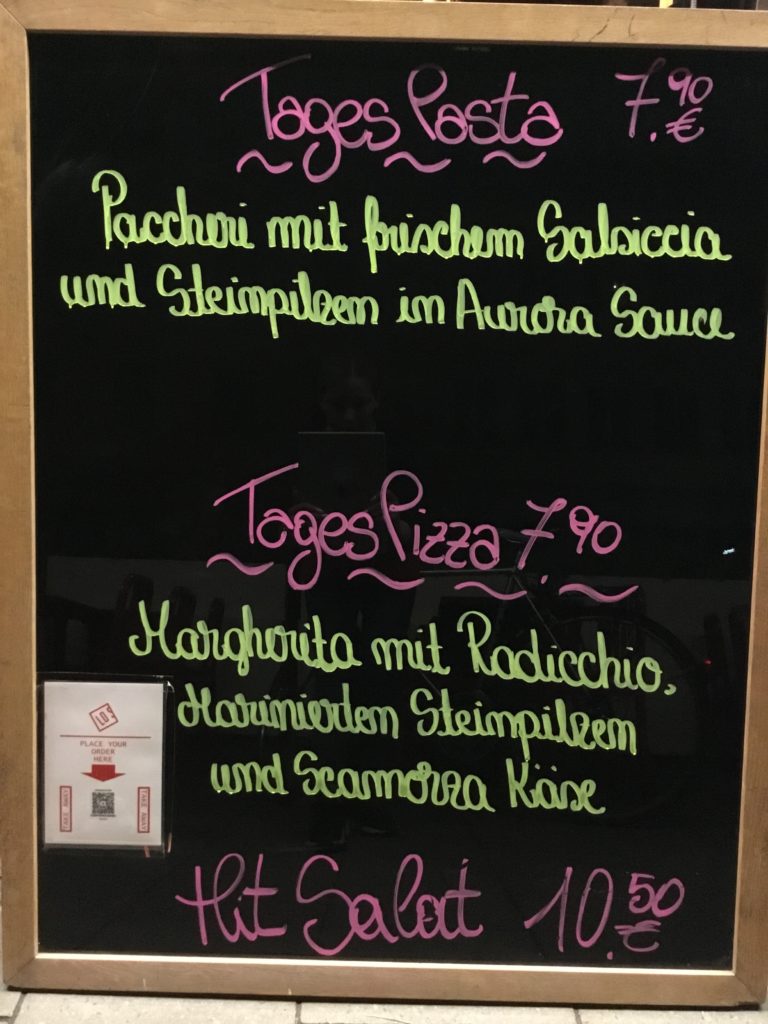 Tages Pasta 7.90 €
Paccheri mit frischem Salsiccia
und Steinpilzen in Aurora Sauce
Tages Pizza 7.90
Margherita mit Radicchio,
Marinierten Steinpilzen
und Scamorza Käse
LOS
PLACE YOUR
ORDER
HERE
TAKE AWAY
TAKE AWAY
Hit Salat 10.50 €